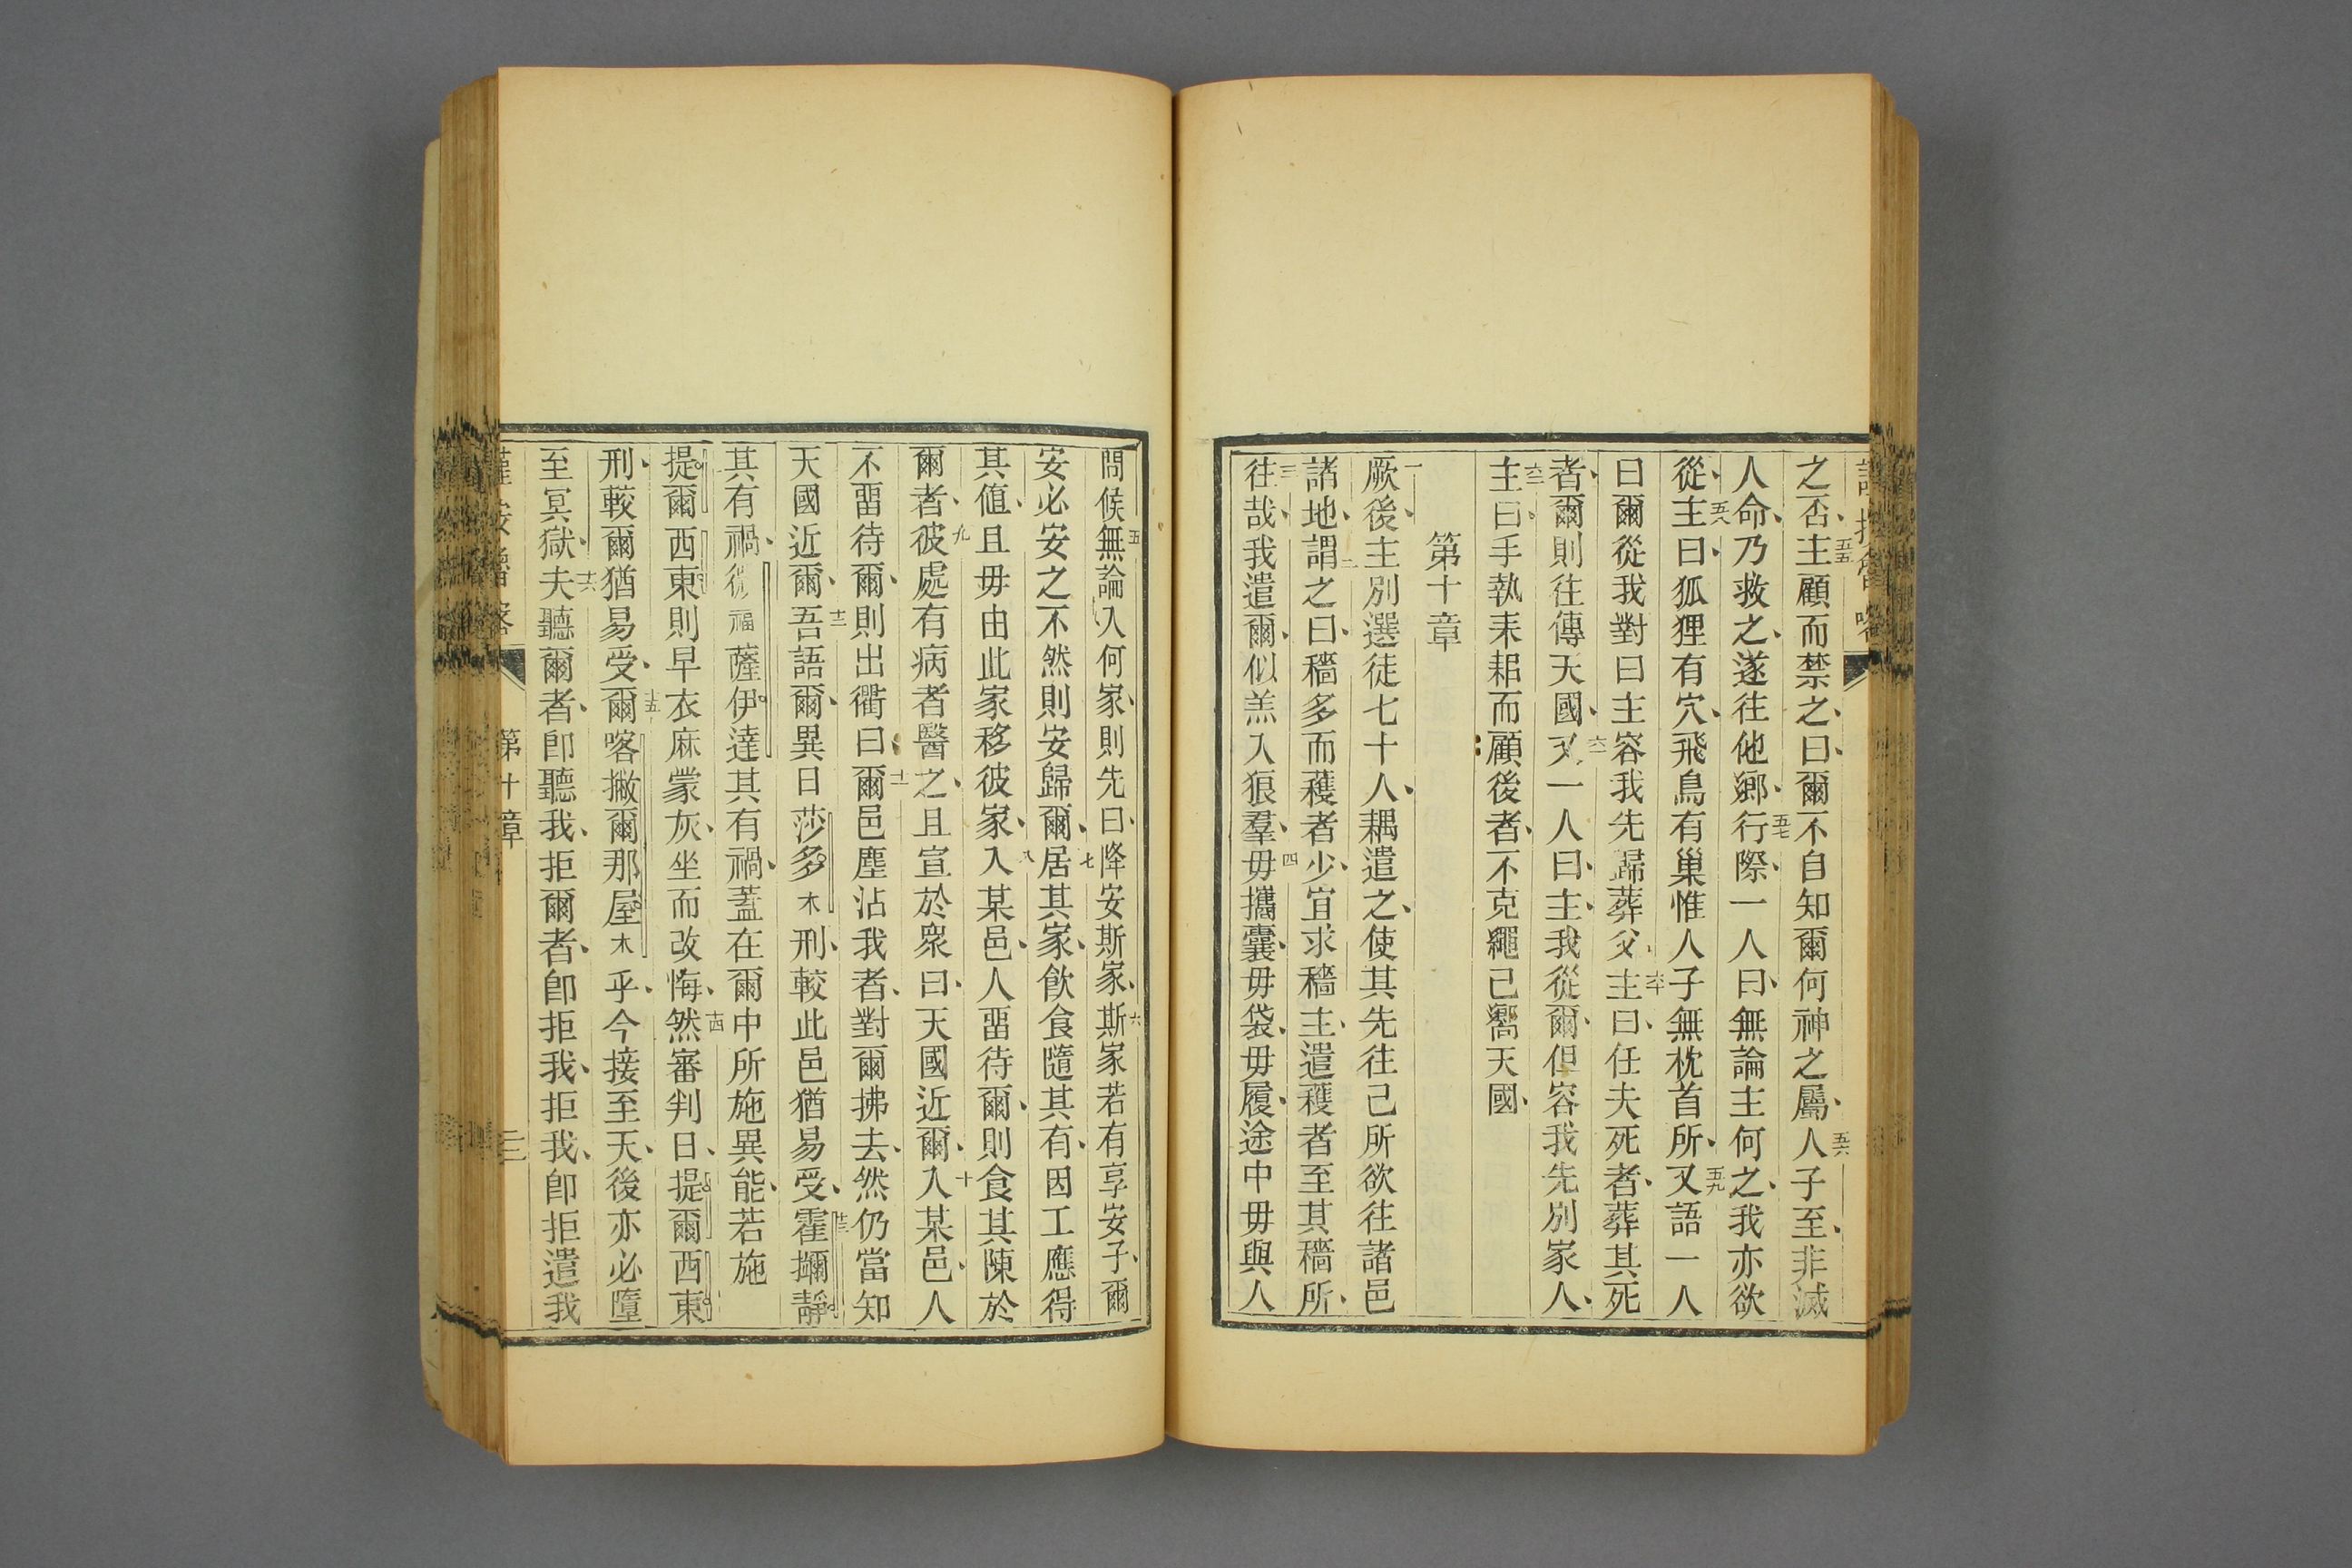 之否、主顧而禁之、曰爾不自知爾何神之屬、人子至、非滅
五五
五六
人命、乃救之、遂往他鄉、行際、一人曰、無論主何之、我亦欲
五七
從、主曰、狐狸有穴、飛鳥有巢惟人子無枕首所、又語一人
五八
五九
曰爾從我對曰主容我先歸葬父、主曰、任夫死者、葬其死
六十
者、爾則往傳天國、又一人曰、主、我從爾、但容我先別家人、
六一
主曰、手執耒耜而顧後者、不克繩己嚮天國、
六二
第十章
厥後、主別選徒七十人、耦遣之、使其先往己所欲往諸邑
一
諸地、謂之曰、穡多而穫者少、宜求穡主、遣穫者至其穡所、
二
往哉、我遣爾、似羔入狼羣、毋攜囊、毋袋、毋履、途中毋與人
三
四
問候無論入何家、則先曰、降安斯家、斯家若有享安子、爾
五
六
安必安之不然則安歸爾、居其家、飲食隨其有、因工應得
七
其值、且毋由此家移彼家、入某邑、人畱待爾、則食其陳於
八
爾者、彼處有病者醫之、且宣於衆曰、天國近爾、入某邑、人
九
十
不畱待爾、則出衢曰、爾邑塵沾我者、對爾拂去、然仍當知
十一
天國近爾、吾語爾、異日莎多木刑、較此邑猶易受、霍攔靜
十二
十三
其有禍、福薩伊達其有禍、蓋在爾中所施異能、若施
提爾西東則早衣麻蒙灰、坐而改悔、然審判日、提爾西東
十四
刑、較爾猶易受、爾喀撇爾那屋木乎、今接至天、後亦必墮
十五
至冥獄、夫聽爾者、卽聽我、拒爾者、卽拒我、拒我、卽拒遣我
十六
第十章